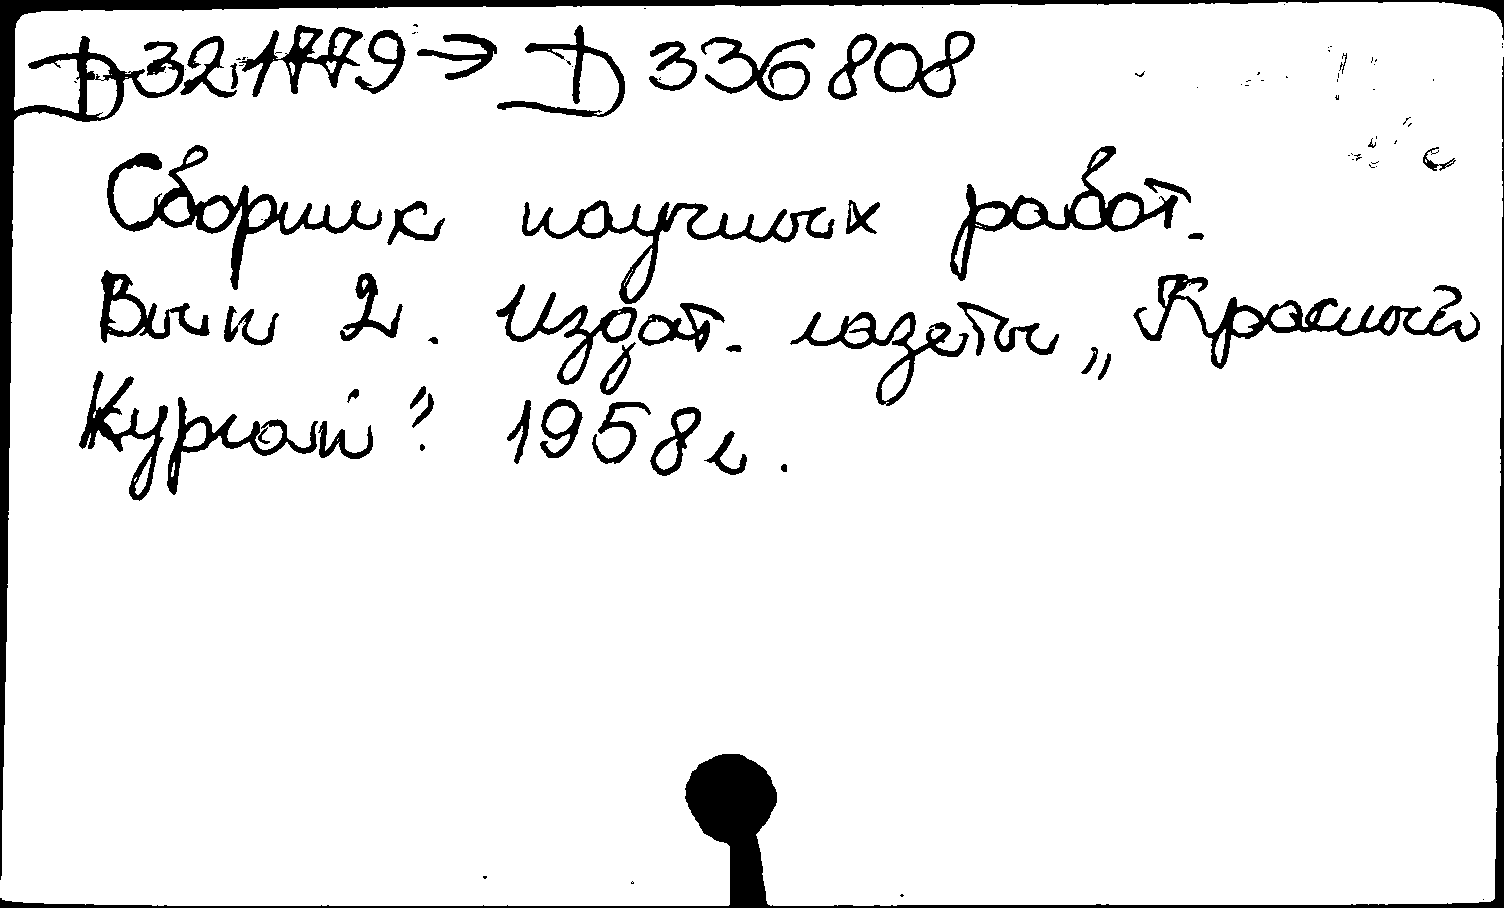 D 321779 → D 336808
Сборник научных работ.
Вып 2. Издат. газеты „Красный
Курган". 1958г.